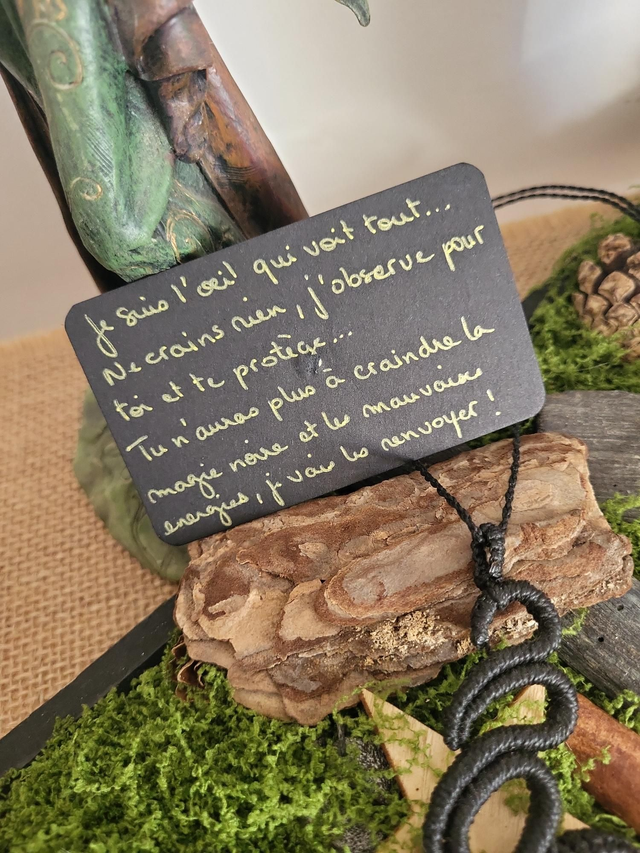 Je suis l'œil qui voit tout...
Ne crains rien, j'observe pour
toi et te protège...
Tu n'auras plus à craindre la
magie noire et les mauvaises
energies, je vais les renvoyer !